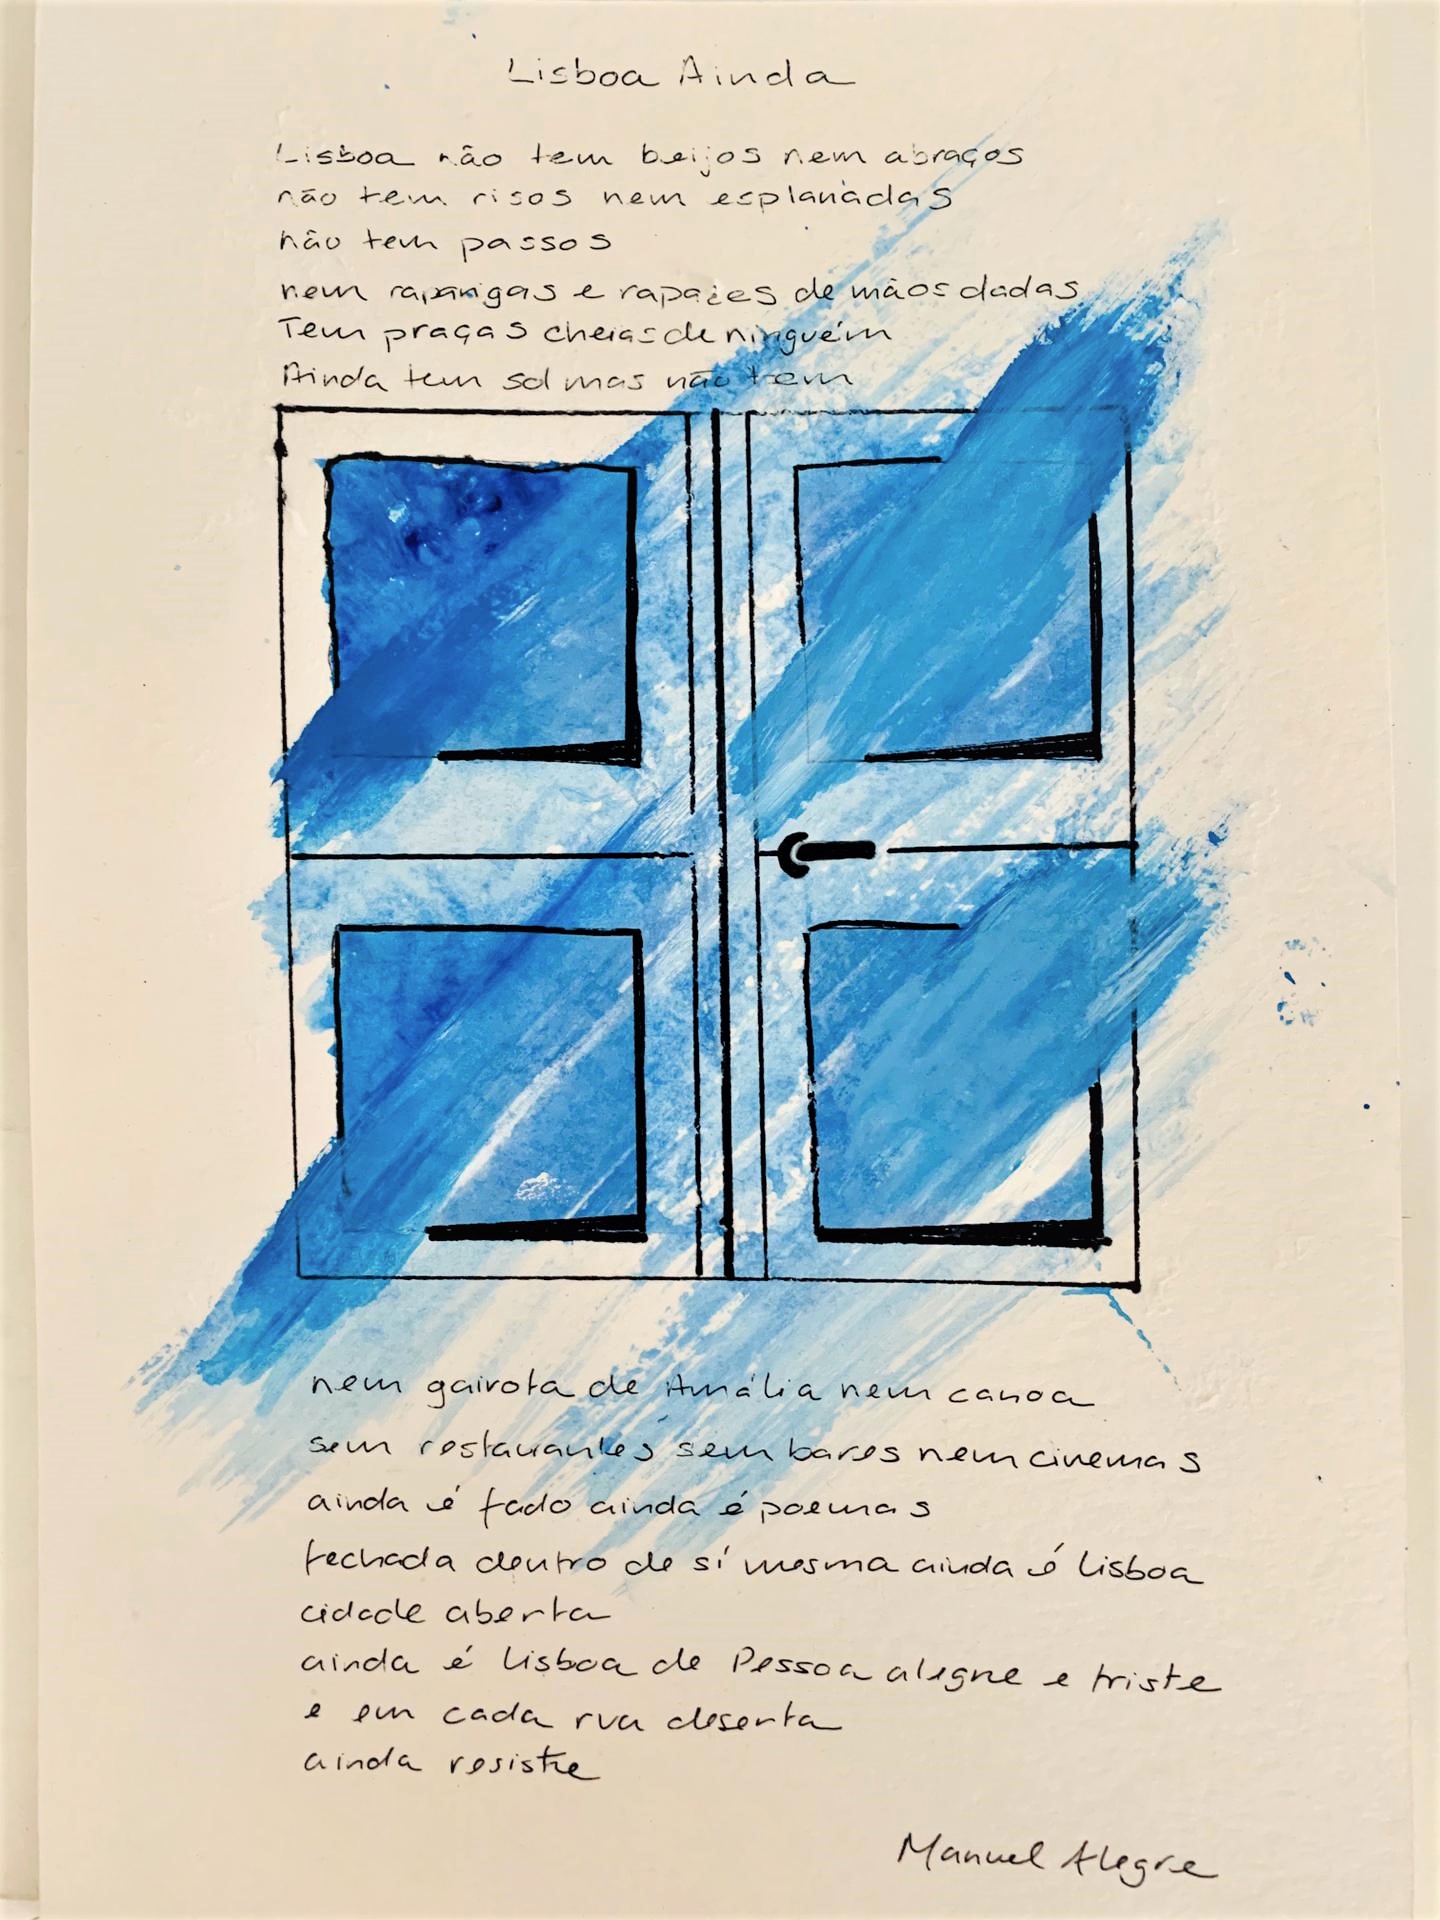 Lisboa Ainda
Lisboa não tem beijos nem abraços
não tem risos nem esplanadas
não tem passos
nem raparigas e rapazes de mãos dadas
Tem praças cheias de ninguém
Ainda tem sol mas não tem
nem gaivota de Amália nem canoa
sem restaurantes sem bares nem cinemas
ainda é fado ainda é poemas
fechada dentro de sí mesma ainda é Lisboa
cidade aberta
ainda é Lisboa de Pessoa alegre e triste
e em cada rua deserta
ainda resiste
Manuel Alegre